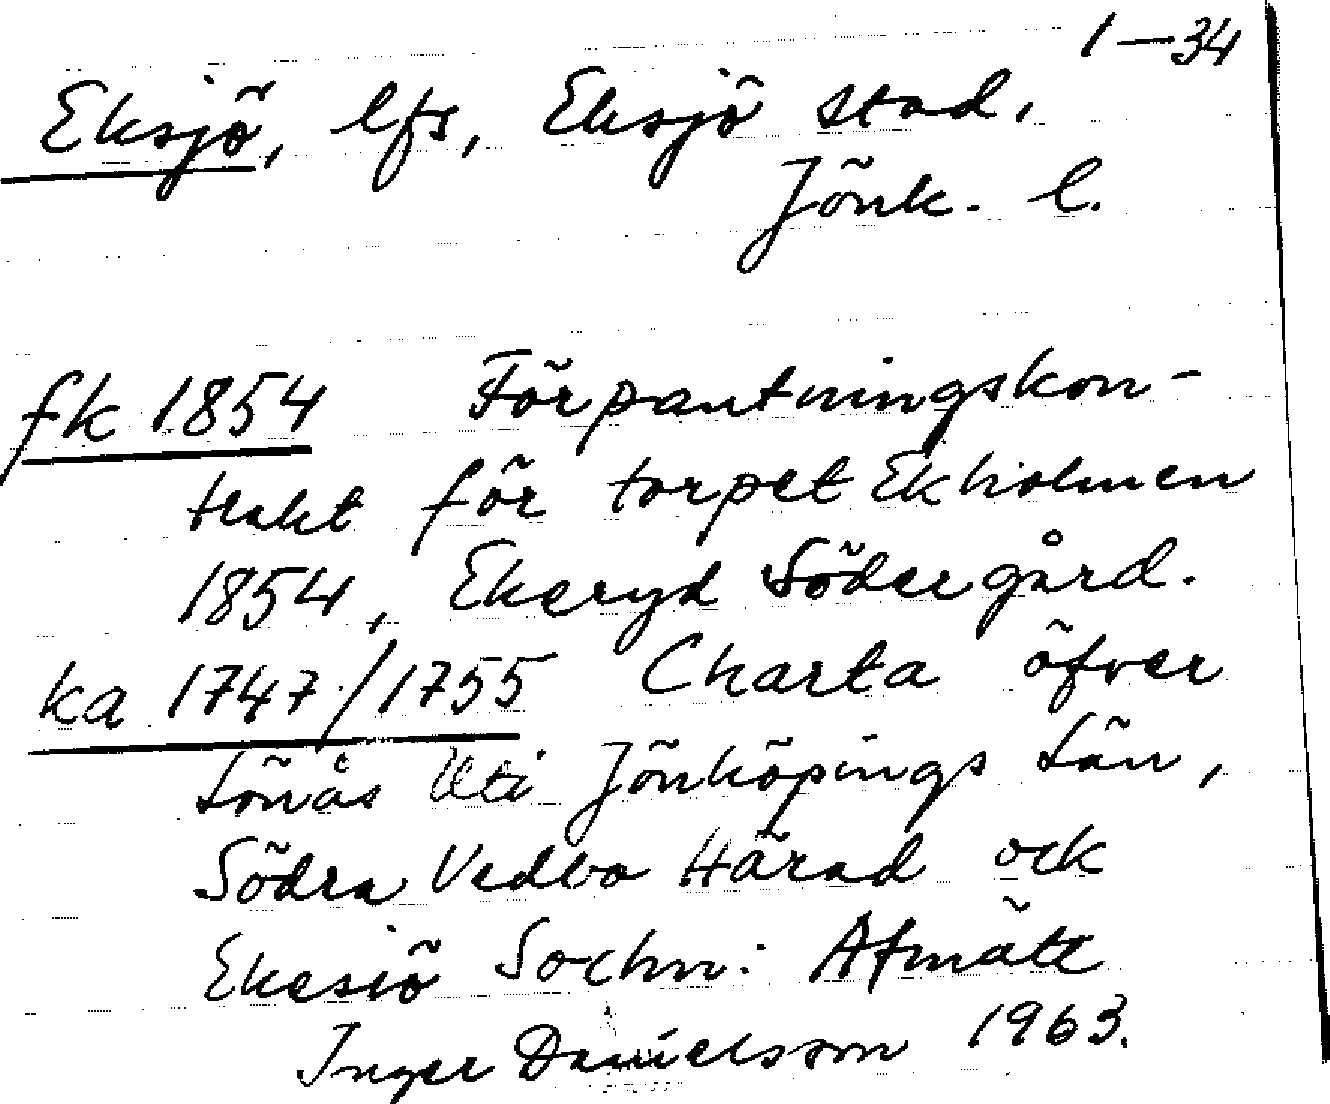 1–34
Eksjö, lfs, Eksjö stad,
Jönk. l.
fk 1854 Förpantningskon-
trakt för torpet Ekholmen
1854, Ekeryd Södergård.
ka 1747/1755 Charta öfver
Lönås Uti Jönköpings Län,
Södra Vedbo Härad ock
Ekesiö Sochn: Afmätt
Inger Danielsson 1963.